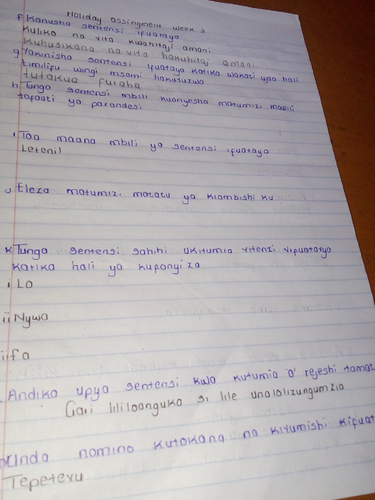 Holiday assingment week 2
f Kanusha sentensi ifuatayo
kuliko na vita kwahitaji amani
Kuhusikana na vita hakuhitaj amani
g Yakinisha sentensi ifuatayo katika wakati upo hali
timilifu wingi msomi hakutuzwa
tutakua furaha
h Tunga sentensi mbili kuonyesha matumizi mawili
tofauti ya parandesi
i Toa maana mbili ya sentensi ifuatayo
Leteni!
J Eleza matumizi matatu ya kiambishi ku
K Tunga sentensi sahihi ukitumia vitenzi vifuatavyo
katika hali ya kuponyiza
i La
ii Nywa
iii fa
Andika upya sentensi kwa kutumia 'o' rejeshi tamati
Gari lililoanguka si lile unalolizungumzia
Unda nomino kutokana na kivumishi
Tepetevu